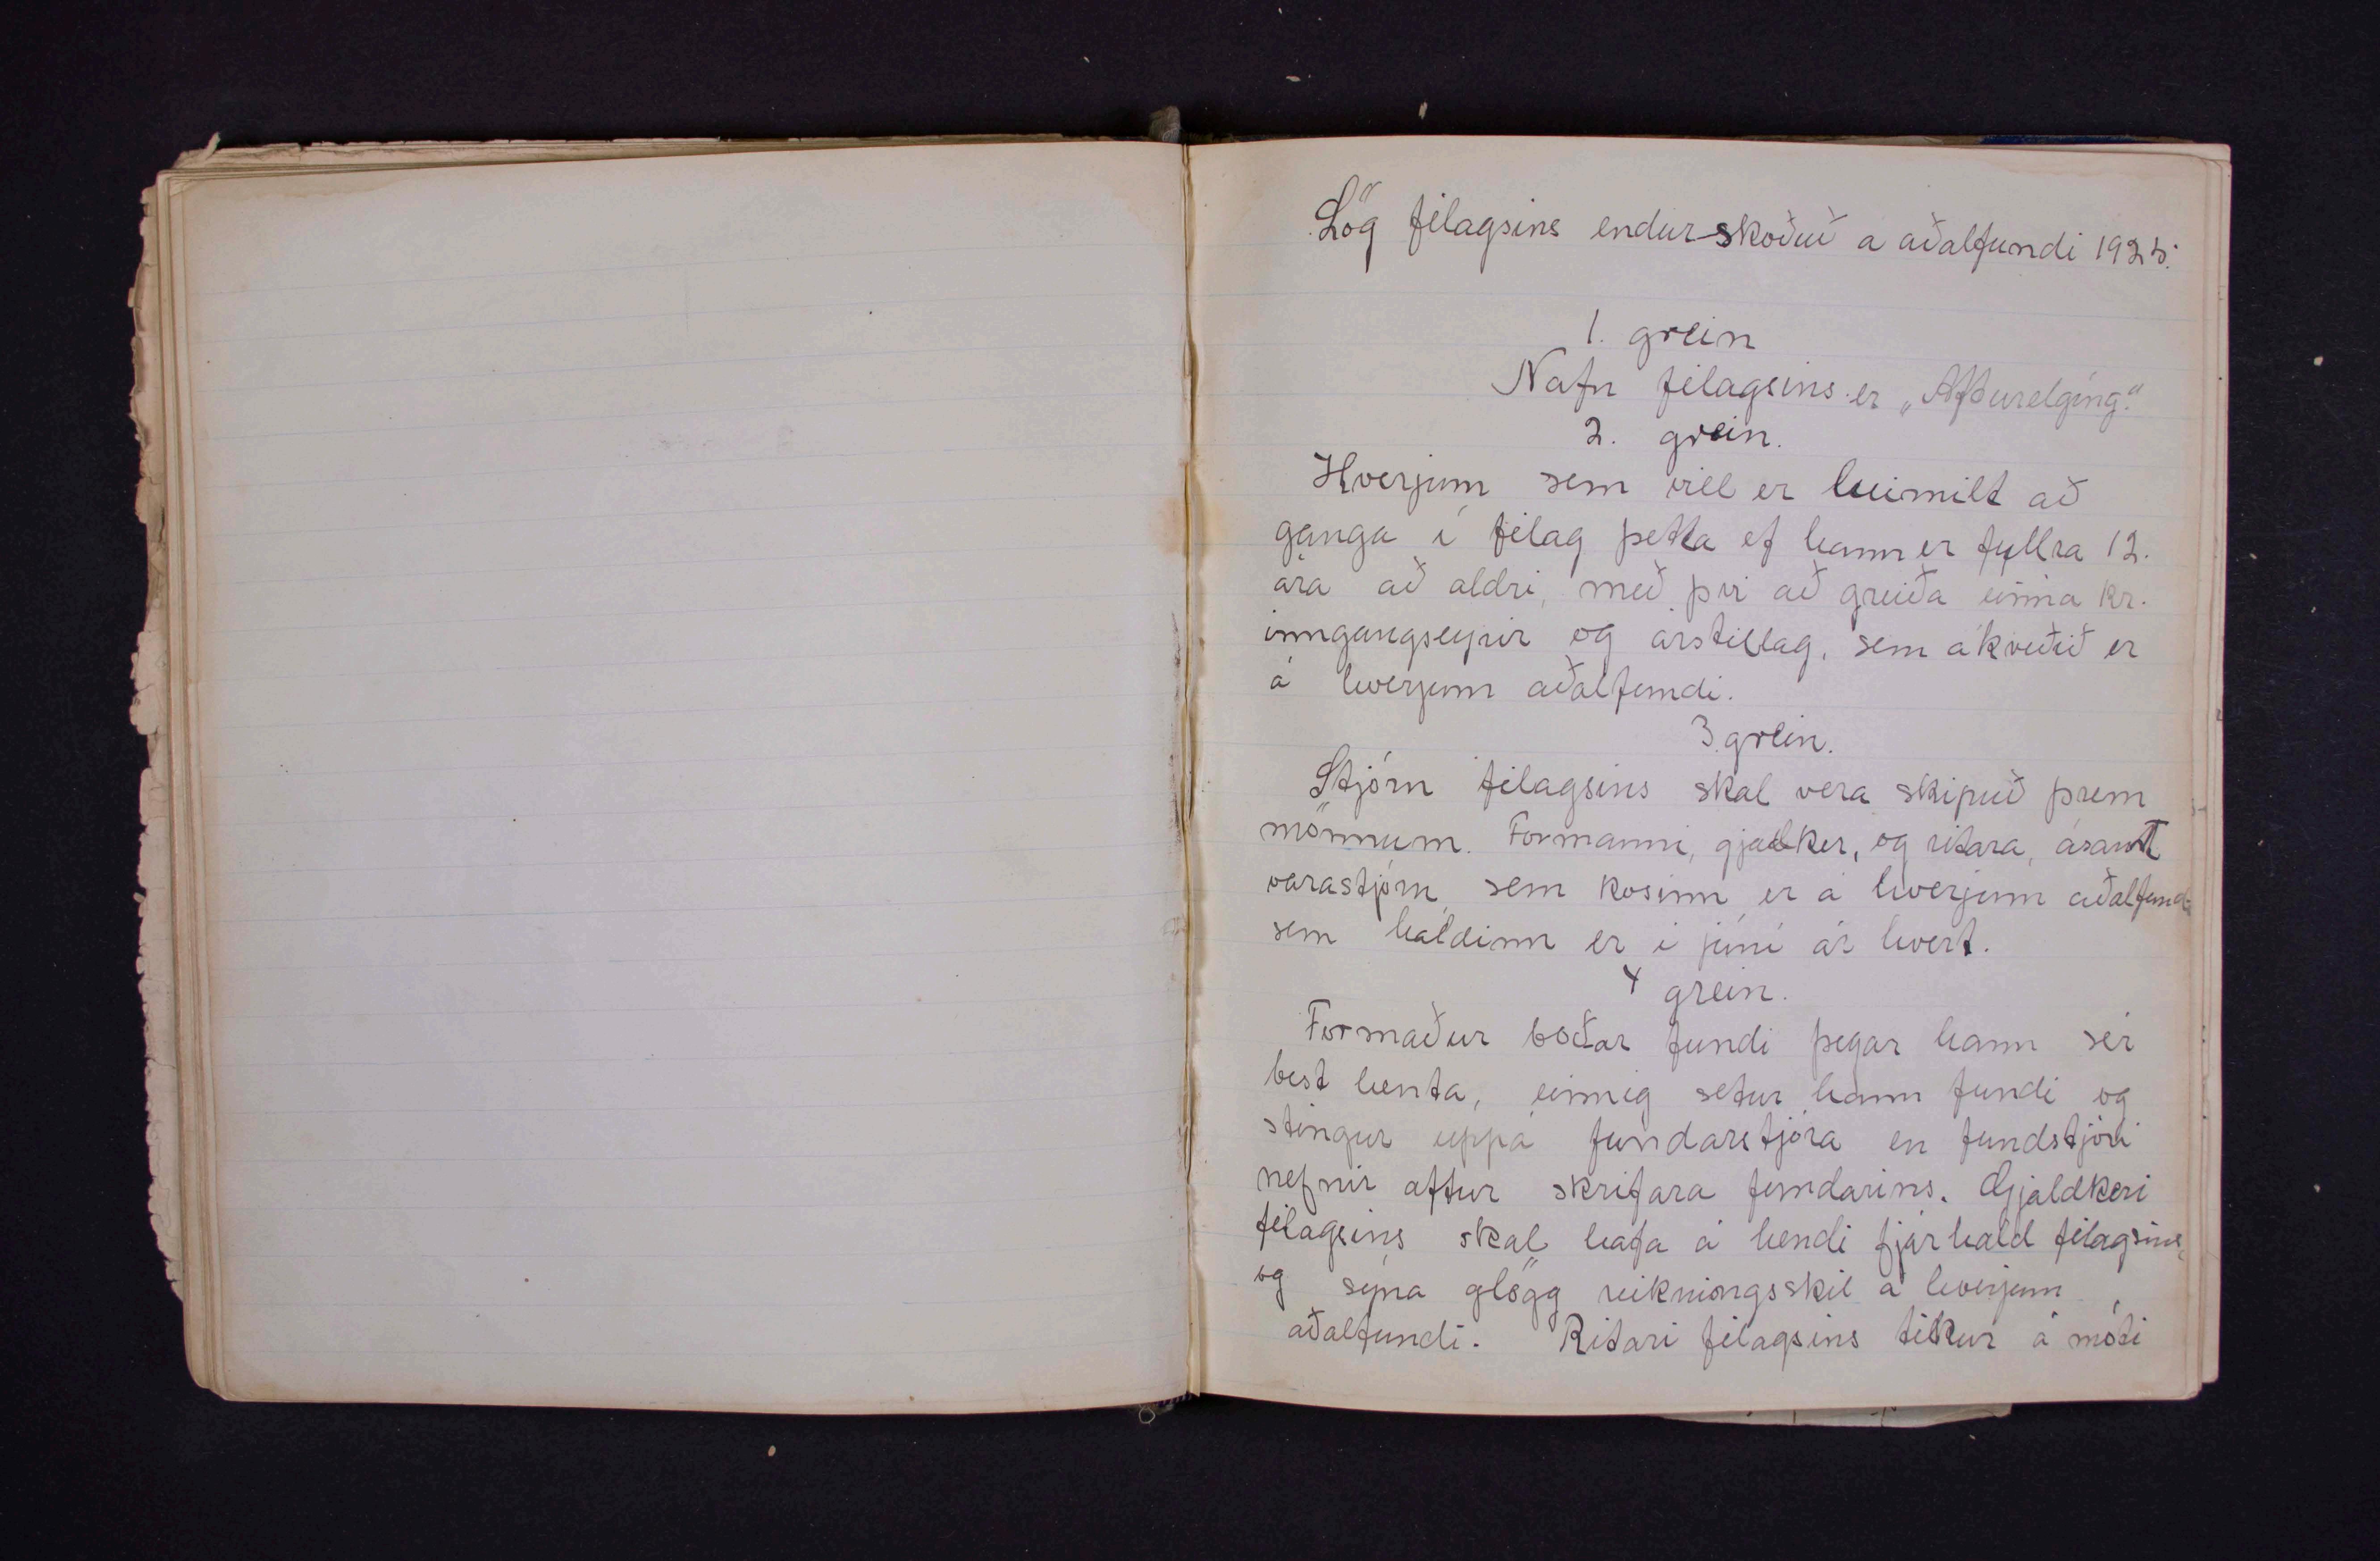 Lög félagsins endurskoðuð á aðalfundi 1925.
1. grein
Nafn félagsins er „Afturelging."
2. grein.
Hverjum sem vill er heimilt að
ganga í félag þetta ef hann er fyllra 12.
ára að aldri, með því að greiða eina kr.
inngangseyrir og árstillag, sem ákveðið er
á hverjum aðalfundi.
3. grein.
Stjórn félagsins skal vera skipuð þrem
mönnum. Formanni, gjaldker, og ritara, ásamt
varastjórn, sem kosinn er á hverjum aðalfundi
sem haldinn er í júní ár hvert.
4 grein.
Formaður boðar fundi þegar hann sér
best henta, einnig setur hann fundi og
stingur uppá fundarstjóra en fundstjóri
nefnir aftur skrifara fundarins. Gjaldkeri
félagsins skal hafa á hendi fjárhald félagsins,
og sýna glögg reikningsskil á hverjum
aðalfundi. Ritari félagsins tekur á móti